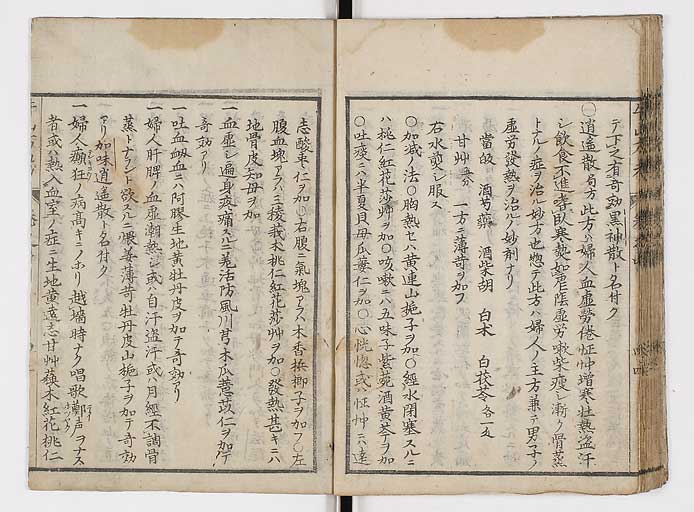 テ下ス者奇効黒神散ト名付ク
○逍遥散局方此方ハ婦人血虚労倦怔忡増寒壮熱盗汗
シ飲食不進嗜臥寒熱如瘧陰虚労嗽柴痩シ漸ク骨蒸
トナル症ヲ治ル妙方也惣テ此方ハ婦人ノ主方兼テ男子ノ
虚労發熱ヲ治ルノ妙剤ナリ
當皈 酒芍藥 酒柴胡 白朮 白茯苓各一匁
甘艸 一方ニ薄苛ヲ加フ
右水煎シ服ス
○加減ノ法○胸熱セハ黄連山梔子ヲ加○經水閉塞スルニ
ハ桃仁紅花莎艸ヲ加○咳嗽ニハ五味子紫苑酒黄芩ヲ加
○吐痰ニハ半夏貝母瓜蔞仁ヲ加○心恍惚或ハ怔忡ニハ遠
志酸棗仁ヲ加○右腹ニ氣塊アラハ木香梹榔子ヲ加フ○左
腹血塊アラハ三稜莪朮桃仁紅花莎艸ヲ加○發熱甚キニハ
地骨皮知母ヲ加
一血虚シ遍身疼痛スルニ羗活防風川芎木瓜薏苡仁ヲ加テ
奇効アリ
一吐血衂血ニハ阿膠生地黄牡丹皮ヲ加テ奇効アリ
一婦人肝脾ノ血虚潮熱シ或ハ自汗盗汗或ハ月經不調骨
蒸トナラント欲スルニ
薄苛牡丹皮山梔子ヲ加テ奇効
アリ加味逍遥散ト名付ク
一婦人癲狂ノ病高キニノホリ越墻時ナク唱歌鄭声ヲナス
者或ハ熱入血室ノ症ニ生地黄遠志甘艸蘓木紅花桃仁